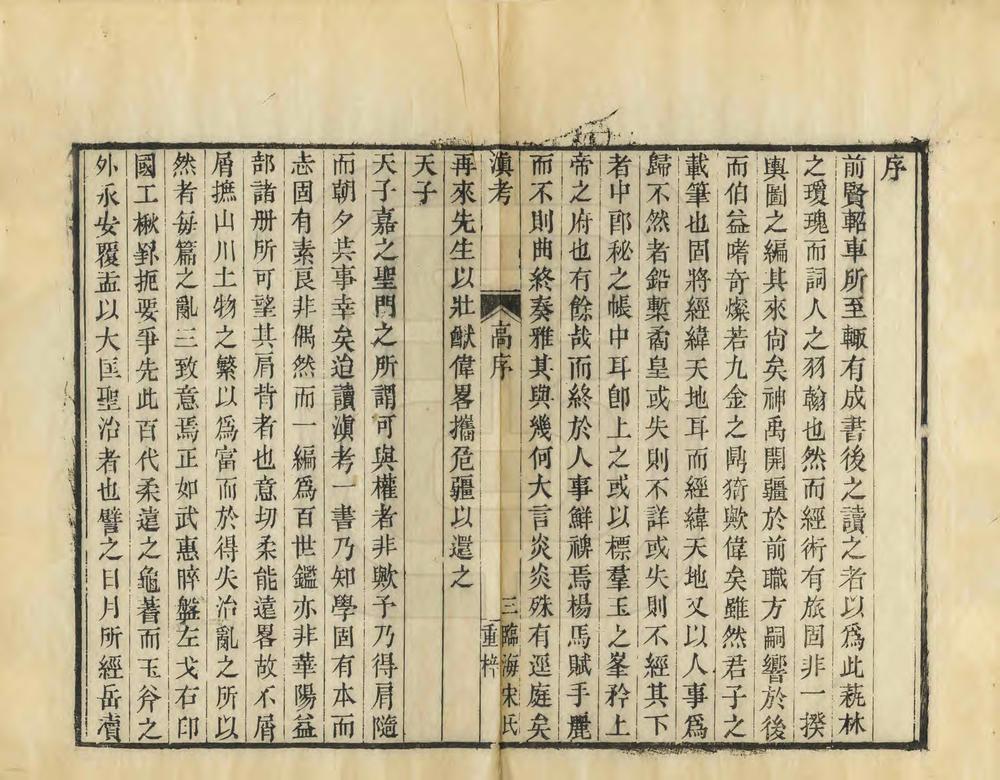 序
前賢軺車所至輙有成書後之讀之者以爲此蓺林
之瓊瑰而詞人之羽翰也然而經術有旅固非一揆
輿圖之編其來尙矣神禹開疆於前職方嗣響於後
而伯益嗜奇燦若九金之鼎猗歟偉矣雖然君子之
載筆也固將經緯天地耳而經緯天地又以人事爲
歸不然者鉛槧矞皇或失則不詳或失則不經其下
者中郎秘之帳中耳卽上之或以標羣玉之峯矜上
帝之府也有餘哉而終於人事鮮裨焉楊馬賦手麗
而不則曲終奏雅其與幾何大言炎炎殊有逕庭矣
滇考
高序
三
臨海宋氏
重梓
再來先生以壯猷偉畧攜危疆以還之
天子
天子嘉之聖門之所謂可與權者非歟予乃得肩隨
而朝夕共事幸矣迨讀滇考一書乃知學固有本而
志固有素良非偶然而一編爲百世鑑亦非華陽益
部諸册所可望其肩背者也意切柔能遠畧故不屑
屑摭山川土物之繁以爲富而於得失治亂之所以
然者每篇之亂三致意焉正如武惠晬盤左戈右印
國工楸𥔵扼要爭先此百代柔遠之龜蓍而玉斧之
外永安覆盂以大匡聖治者也譬之日月所經岳瀆